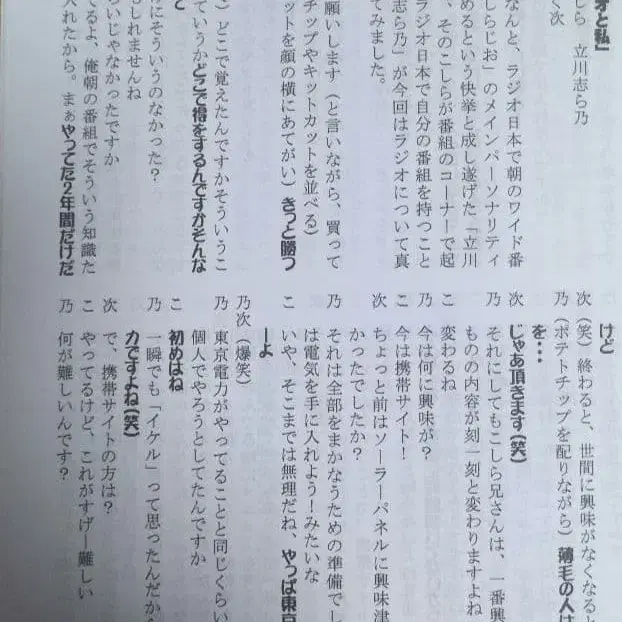 オと私」
しら　立川志ら乃
く次
なんと、ラジオ日本で朝のワイド番
しらじお」のメインパーソナリティ
めるという快挙と成し遂げた「立川
、そのこしらが番組のコーナーで起
ラジオ日本で自分の番組を持つこと
志ら乃」が今回はラジオについて真
てみました。
願いします（と言いながら、買って
チップやキットカットを並べる）
ットを顔の横にあてがい）きっと勝つ
）どこで覚えたんですかそういうこ
ていうかどこで得をするんですかそんな
て
にそういうのなかった？
もしれませんね
らいじゃなかったですか
てるよ、俺朝の番組でそういう知識た
入れたから。まぁやってた２年間だけだ
けど
次　（笑）終わると、世間に興味がなくなると
乃　（ポテトチップを配りながら）薄毛の人は
を・・・
次　じゃあ頂きます（笑）
乃　それにしてもこしら兄さんは、一番興
ものの内容が刻一刻と変わりますよね
こ　変わるね
乃　今は何に興味が？
こ　今は携帯サイト！
次　ちょっと前はソーラーパネルに興味津
かったでしたか？
乃　それは全部をまかなうための準備でし
は電気を手に入れよう！みたいな
こ　いや、そこまでは無理だね、やっぱ東京
ーよ
乃次　（爆笑）
乃　東京電力がやってることと同じくらい
個人でやろうとしてたんですか
こ　初めはね
乃　一瞬でも「イケル」って思ったんだから
力ですよね（笑）
次　で、携帯サイトの方は？
こ　やってるけど、これがすげー難しい
乃　何が難しいんです？